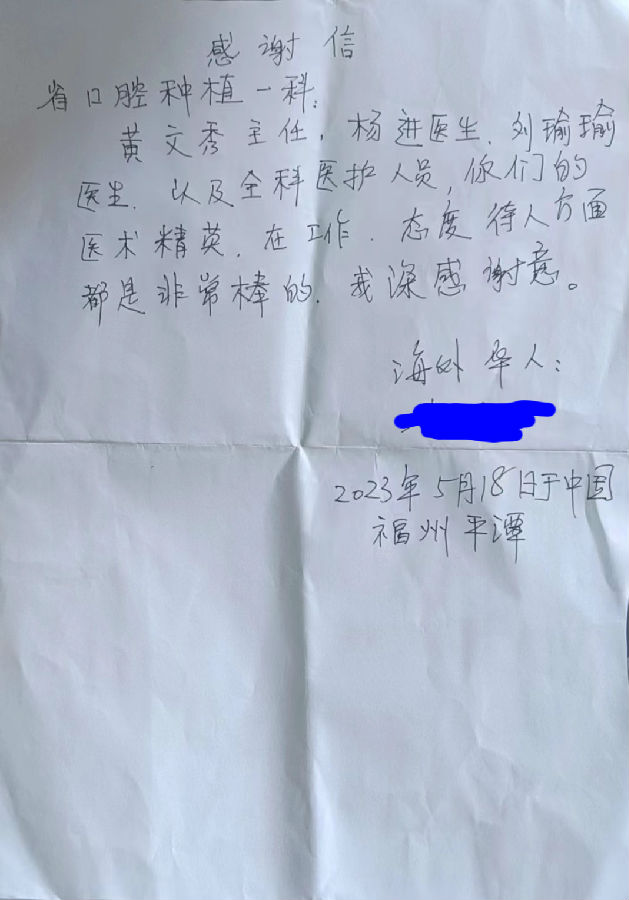 感谢信
省口腔种植一科:
黄文秀主任,杨进医生、刘瑜瑜
医生、以及全科医护人员,你们的
医术精英,在工作、态度待人方面
都是非常棒的,我深感谢意。
海外华人:
2023年5月18日于中国
福州平潭